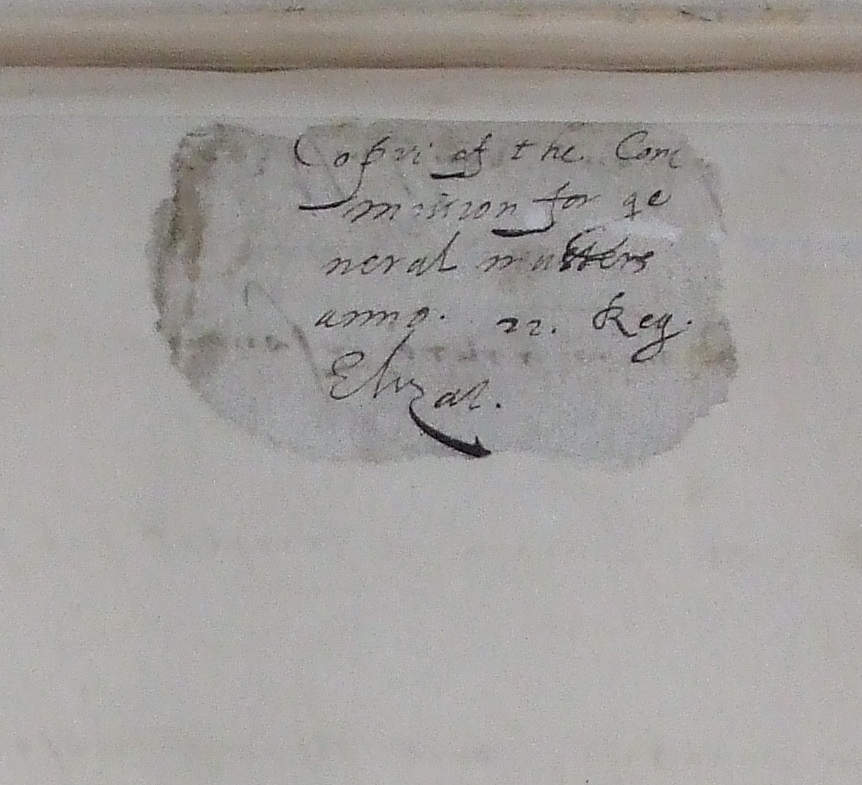 Copi of the Com
mission for ge
neral matters
anno. 22. Reg.
Elizab.